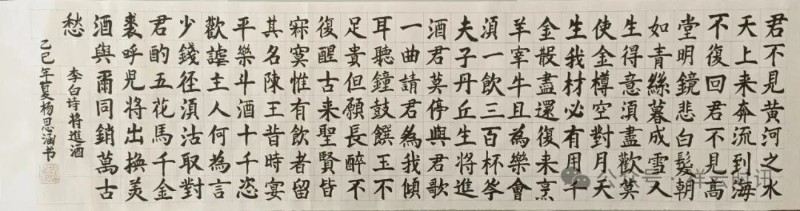 君不見黃河之水
天上來奔流到海
不復回君不見高
堂明鏡悲白髮朝
如青絲暮成雪人
生得意須盡歡莫
使金樽空對月天
生我材必有用千
金散盡還復来烹
羊宰牛且為樂會
須一飲三百杯岑
夫子丹丘生將進
酒君莫停與君歌
一曲請君為我傾
耳聽鐘鼓饌玉不
足貴但願長醉不
復醒古來聖賢皆
寂寞惟有飲者留
其名陳王昔時宴
平樂斗酒十千恣
歡謔主人何為言
少錢徑須沽取對
君酌五花馬千金
裘呼兒將出換美
酒與爾同銷萬古
愁
李白诗將進酒
乙巳年夏杨思涵书
公众号